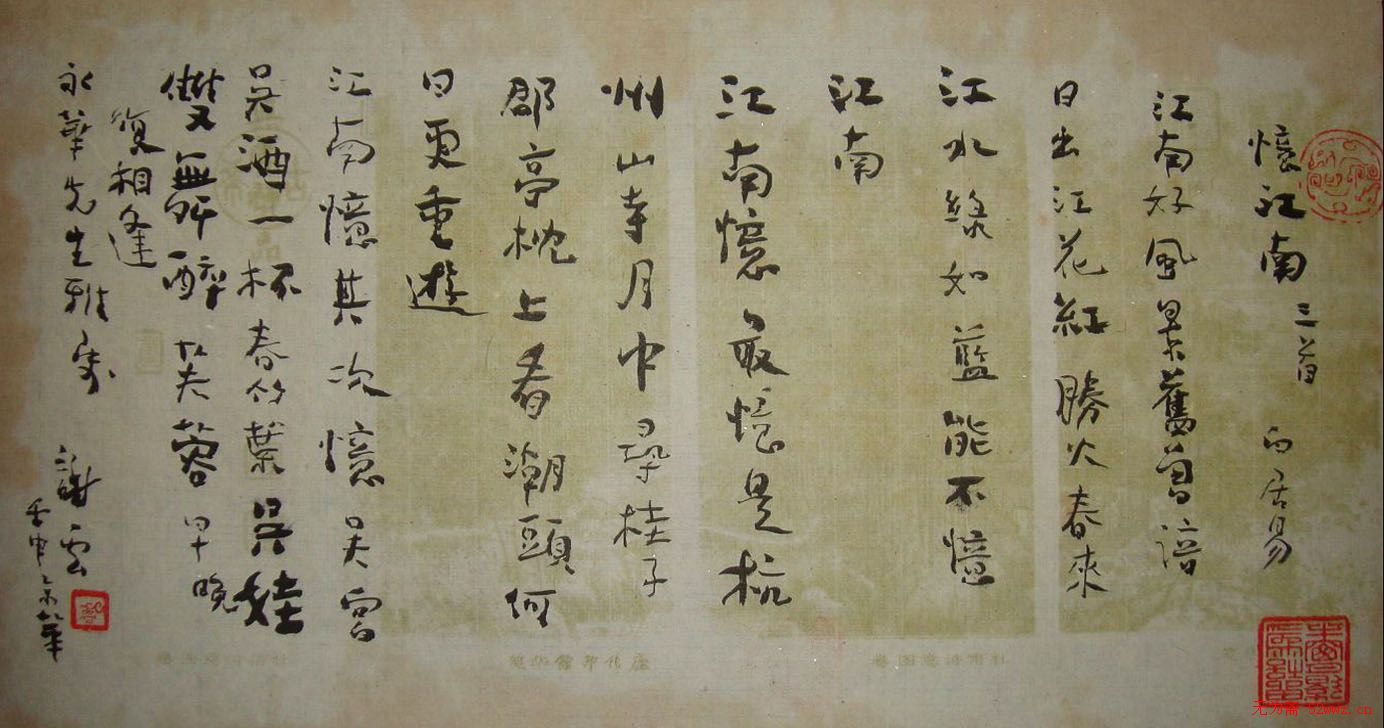 憶江南 三首 白居易
江南好風景舊曾諳
日出江花紅勝火春來
江水綠如藍能不憶
江南
江南憶最憶是杭
州山寺月中尋桂子
郡亭枕上看潮頭何
日更重遊
江南憶其次憶吳宮
吳酒一杯春竹葉吳娃
雙舞醉芙蓉早晚
復相逢
永華先生雅屬
謝雲
壬申